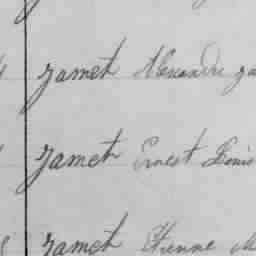 Jamet Alexandre
Jamet Ernest Louis
Jamet Etienne M